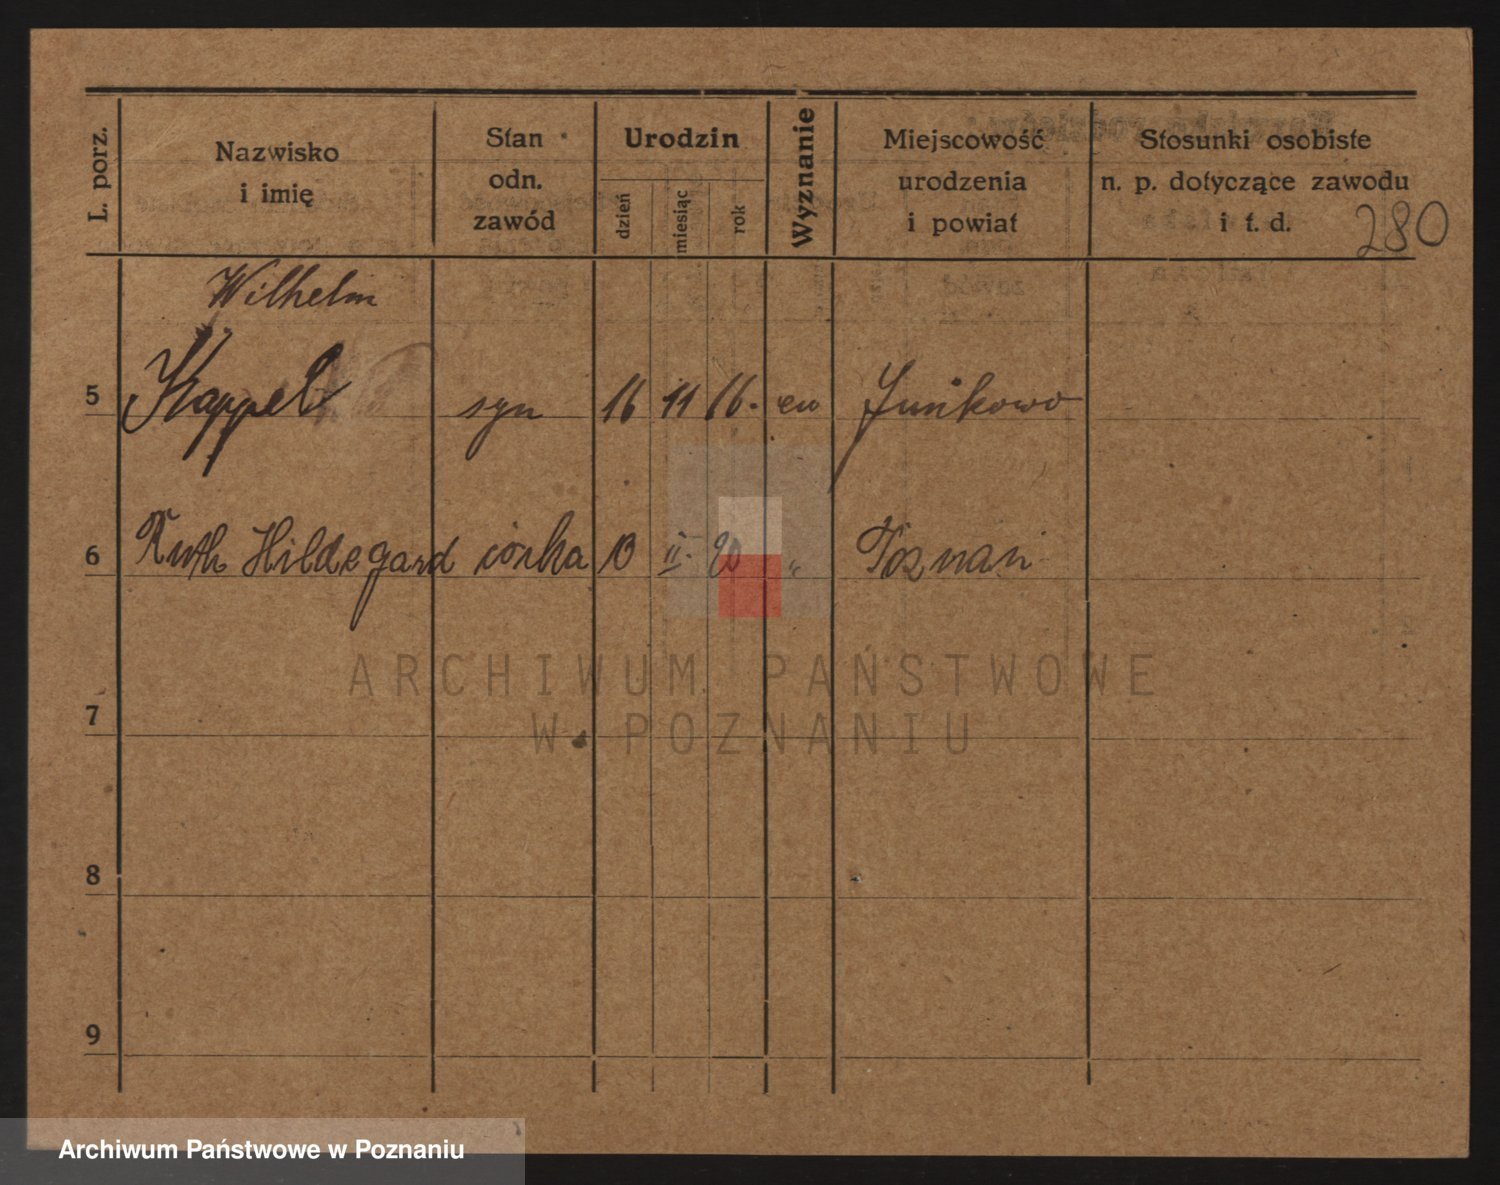 L. porz.
Nazwisko
i imię
Stan
odn.
zawód
Urodzin
dzień
miesiąc
rok
Wyznanie
Miejscowość
urodzenia
i powiat
Stosunki osobiste
n. p. dotyczące zawodu
i t. d.
280
Wilhelm
5 Kappel syn 16 11 16. ew Junikowo
6 Ruth Hildegard córka 13 II. 20 " Poznań
ARCHIWUM PAŃSTWOWE
W POZNANIU
7
8
9
Archiwum Państwowe w Poznaniu